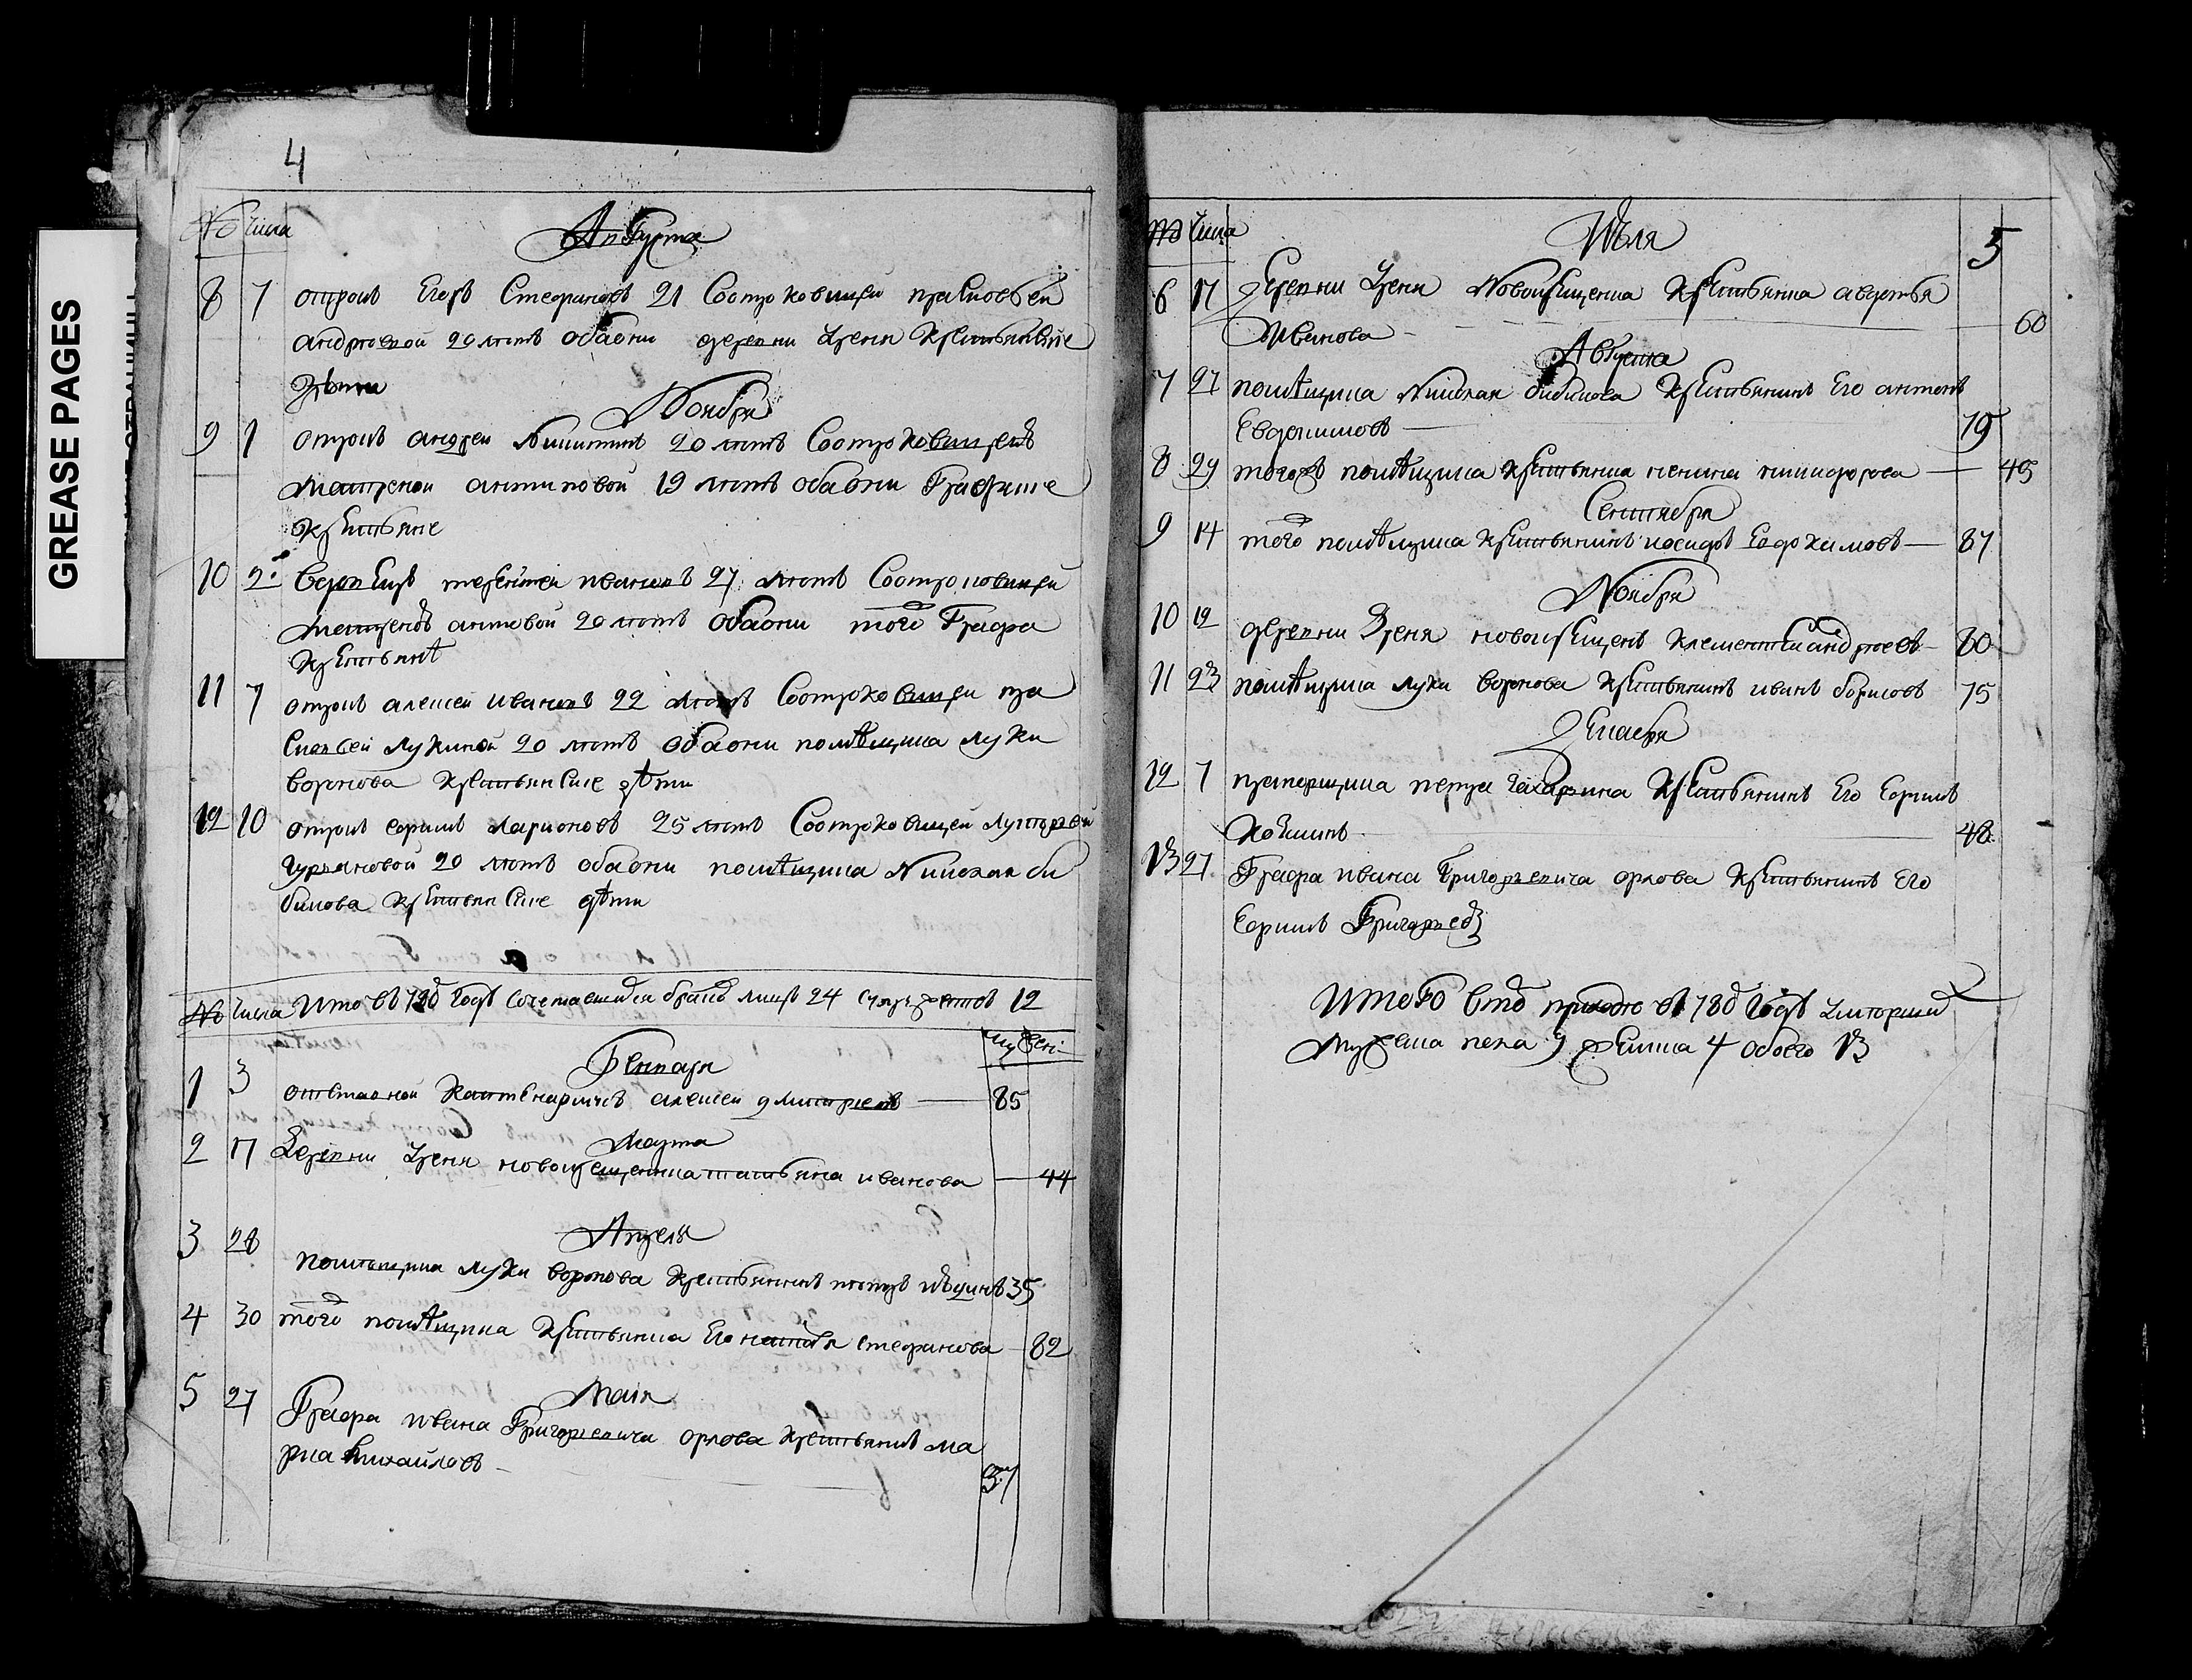 GREASE PAGES
4
№ числа
Августа
8 7 отрокъ Егоръ Стефановъ 21 Со отроковицеи прасковьей
андреевой 20 летъ оба они деревни Уреня Крестьянские
дети
Ноября
9 1 отрокъ андреи Никитинъ 20 летъ Со отроковицею
матреной антиповой 19 летъ оба они Графские
крестьяне
10 2 вдовецъ терентеи ивановъ 27 летъ Со отроковицеи
20 летъ оба они того Графа
крестьяне
11 7 отрокъ алексеи ивановъ 22 летъ Со отроковицеи пра
сковьей лукиной 20 летъ оба они помѣщика луки
воронова крестьянские дѣти
12 10 отрокъ ефимъ ларионовъ 25 летъ Со отроковицей лукерьей
гурьяновой 20 летъ оба они помѣщика Николая би
бикова крестьянские дѣти
№ числа Итого въ 780 годѣ сочетавшихся бракомъ лицъ 24 супружествъ 12
муж жен
Генваря
1 3 отставной алексеи дмитриевъ — 85
Марта
2 17 Деревни Уреня новокрещенка татьяна иванова — 44
Апреля
3 28 помѣщика луки воронова крестьянинъ петръ 35
4 30 того помѣщика крестьянка Его стефанова 82
Маiя
5 27 Графа ивана Григорьевича орлова крестьянинъ ма
рка михайловъ 37
№ числа
Июля
5
6 17 Деревни Уреня Новокрещенка крестьянка авдотья
Иванова — 60
Августа
7 27 помѣщика Николая бибикова крестьянинъ Его антонъ
Евдокимовъ — 19
8 29 тогожъ помѣщика крестьянка никифорова — 45
Сентября
9 14 того помѣщика крестьянинъ Евдокимовъ — 87
Ноября
10 12 деревни Уреня новокрещенъ клементеи андреевъ — 80
11 23 помѣщика луки воронова крестьянинъ иванъ борисовъ 75
Декабря
12 7 прапорщика петра крестьянинъ Его Ефимъ
48
13 27 Графа ивана Григорьевича орлова крестьянинъ Его
Ефимъ Григорьевъ
Итого въ томъ приходе въ 1780 годѣ умершихъ
мужеска пола 9 женска 4 обоего 13